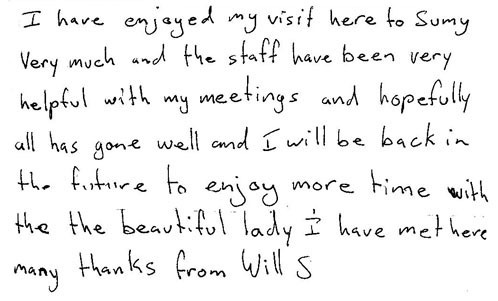 I have enjoyed my visit here to Sumy
Very much and the staff have been very
helpful with my meetings and hopefully
all has gone well and I will be back in
the future to enjoy more time with
the the beautiful lady I have met here
many thanks from Will S